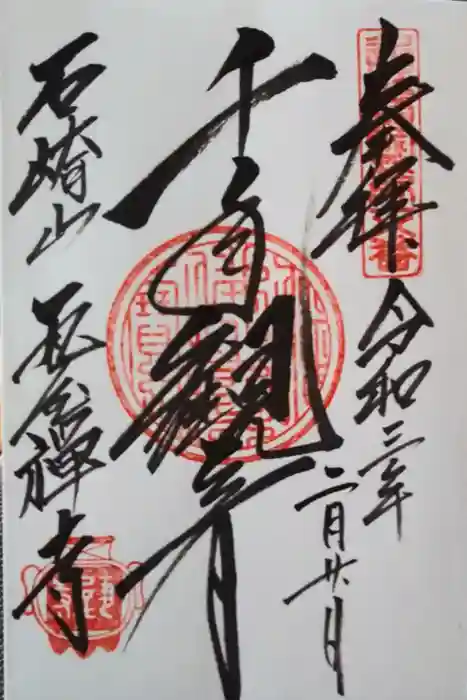 奉拝
令和三年
二月廿日
千手観音
石崎山 瓦屋禅寺